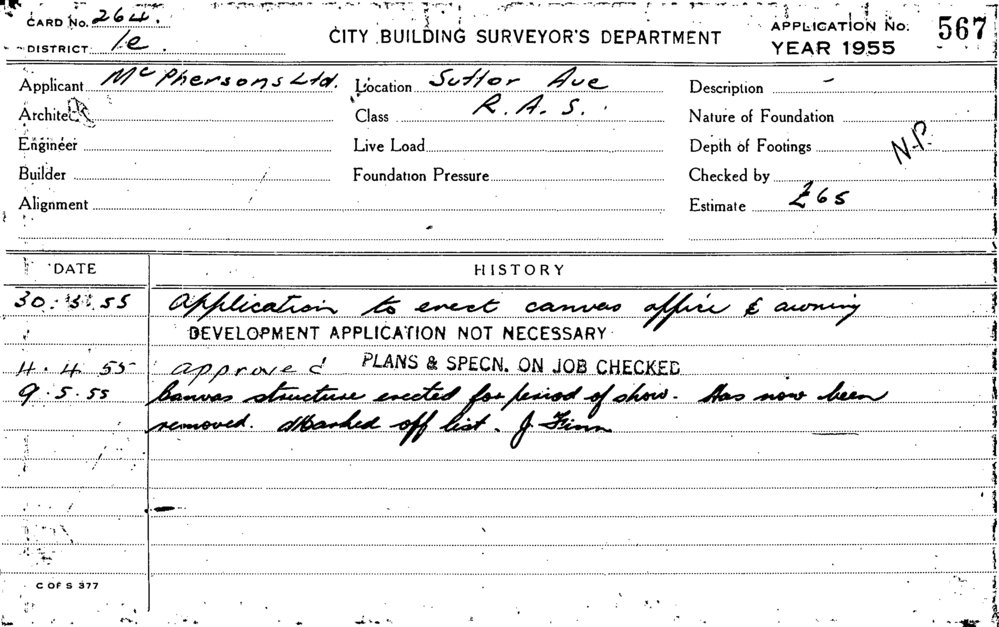 CARD No. 264.
DISTRICT 1e.
CITY BUILDING SURVEYOR'S DEPARTMENT
APPLICATION No. 567
YEAR 1955
Applicant McPhersons Ltd. Location Suttor Ave Description -
Architect Class R. A. S. Nature of Foundation
Engineer Live Load Depth of Footings N.P.
Builder Foundation Pressure Checked by
Alignment Estimate £65
DATE HISTORY
30.3.55 Application to erect canvas office & awning
DEVELOPMENT APPLICATION NOT NECESSARY
4.4.55 approved PLANS & SPECN. ON JOB CHECKED
9.5.55 Canvas structure erected for period of show. Has now been
removed. Marked off list. J Finn
C OF S 377